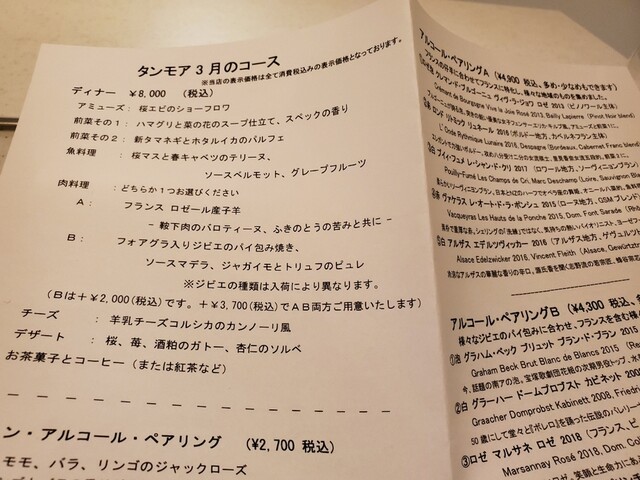 タンモア３月のコース
※当店の表示価格は全て消費税込みの表示価格となっております。
ディナー ￥8,000 （税込）
アミューズ： 桜エビのショーフロワ
前菜その１： ハマグリと菜の花のスープ仕立て、スペックの香り
前菜その２： 新タマネギとホタルイカのパルフェ
魚料理 ： 桜マスと春キャベツのテリーヌ、
ソースベルモット、グレープフルーツ
肉料理 ： どちらか１つお選びください
Ａ： フランス ロゼール産子羊
- 鞍下肉のバロティーヌ、ふきのとうの苦みと共に -
Ｂ： フォアグラ入りジビエのパイ包み焼き、
ソースマデラ、ジャガイモとトリュフのピュレ
※ジビエの種類は入荷により異なります。
（Ｂは＋￥2,000(税込)です。＋￥3,700(税込)でＡＢ両方ご用意いたします）
チーズ ： 羊乳チーズコルシカのカンノーリ風
デザート ： 桜、苺、酒粕のガトー、杏仁のソルベ
お茶菓子とコーヒー（または紅茶など）
ン・アルコール・ペアリング （￥2,700 税込）
モモ、バラ、リンゴのジャックローズ
アルコール・ペアリングＡ（￥4,900 税込、多め・少なめもできます）
フランスの日本に合わせてフランスに特化し、様々な地域のものを集めました。
クレマン・ド・ブルゴーニュ ヴィヴ・ラ・ジョワ ロゼ 2013（ピノノワール主体）
Crémant de Bourgogne Vive la Joie Rosé 2013, Bailly Lapierre (Pinot Noir blend)
L'Onde Rythmique Lunaire 2016, Despagne (Bordeaux, Cabernet Franc blend)
③白 プイィ・フュメ レ・シャン・ド・クリ 2017 （ロワール地方、ソーヴィニヨンブラン）
Pouilly-Fumé Les Champs de Cri, Marc Deschamp (Loire, Sauvignon Blan
④赤 ヴァケラス レ・オート・ド・ラ・ポンシュ 2015（ローヌ地方、GSMブレンド）
Vacqueyras Les Hauts de la Ponche 2015, Dom. Font Sarade (Rhô
⑤白 アルザス エデルツヴィッカー 2016（アルザス地方、ゲヴュルツト
Alsace Edelzwicker 2016, Vincent Fleith (Alsace, Gewürz
アルコール・ペアリングＢ（￥4,300 税込、
様々なジビエのパイ包みに合わせ、フランスを含む様
①泡 グラハム・ベック ブリュット ブラン・ド・ブラン 2015
Graham Beck Brut Blanc de Blancs 2015 (Re
今、話題の南アの泡。宝塚歌劇団花組の次期男役トップ、水
②白 グラーハー ドームプロブスト カビネット 2008
Graacher Domprobst Kabinett 2008, Friedri
50歳にして堂々と『ボレロ』を踊った伝説のバレリー
③ロゼ マルサネ ロゼ 2018（フランス、ピ
Marsannay Rosé 2018, Dom. Col